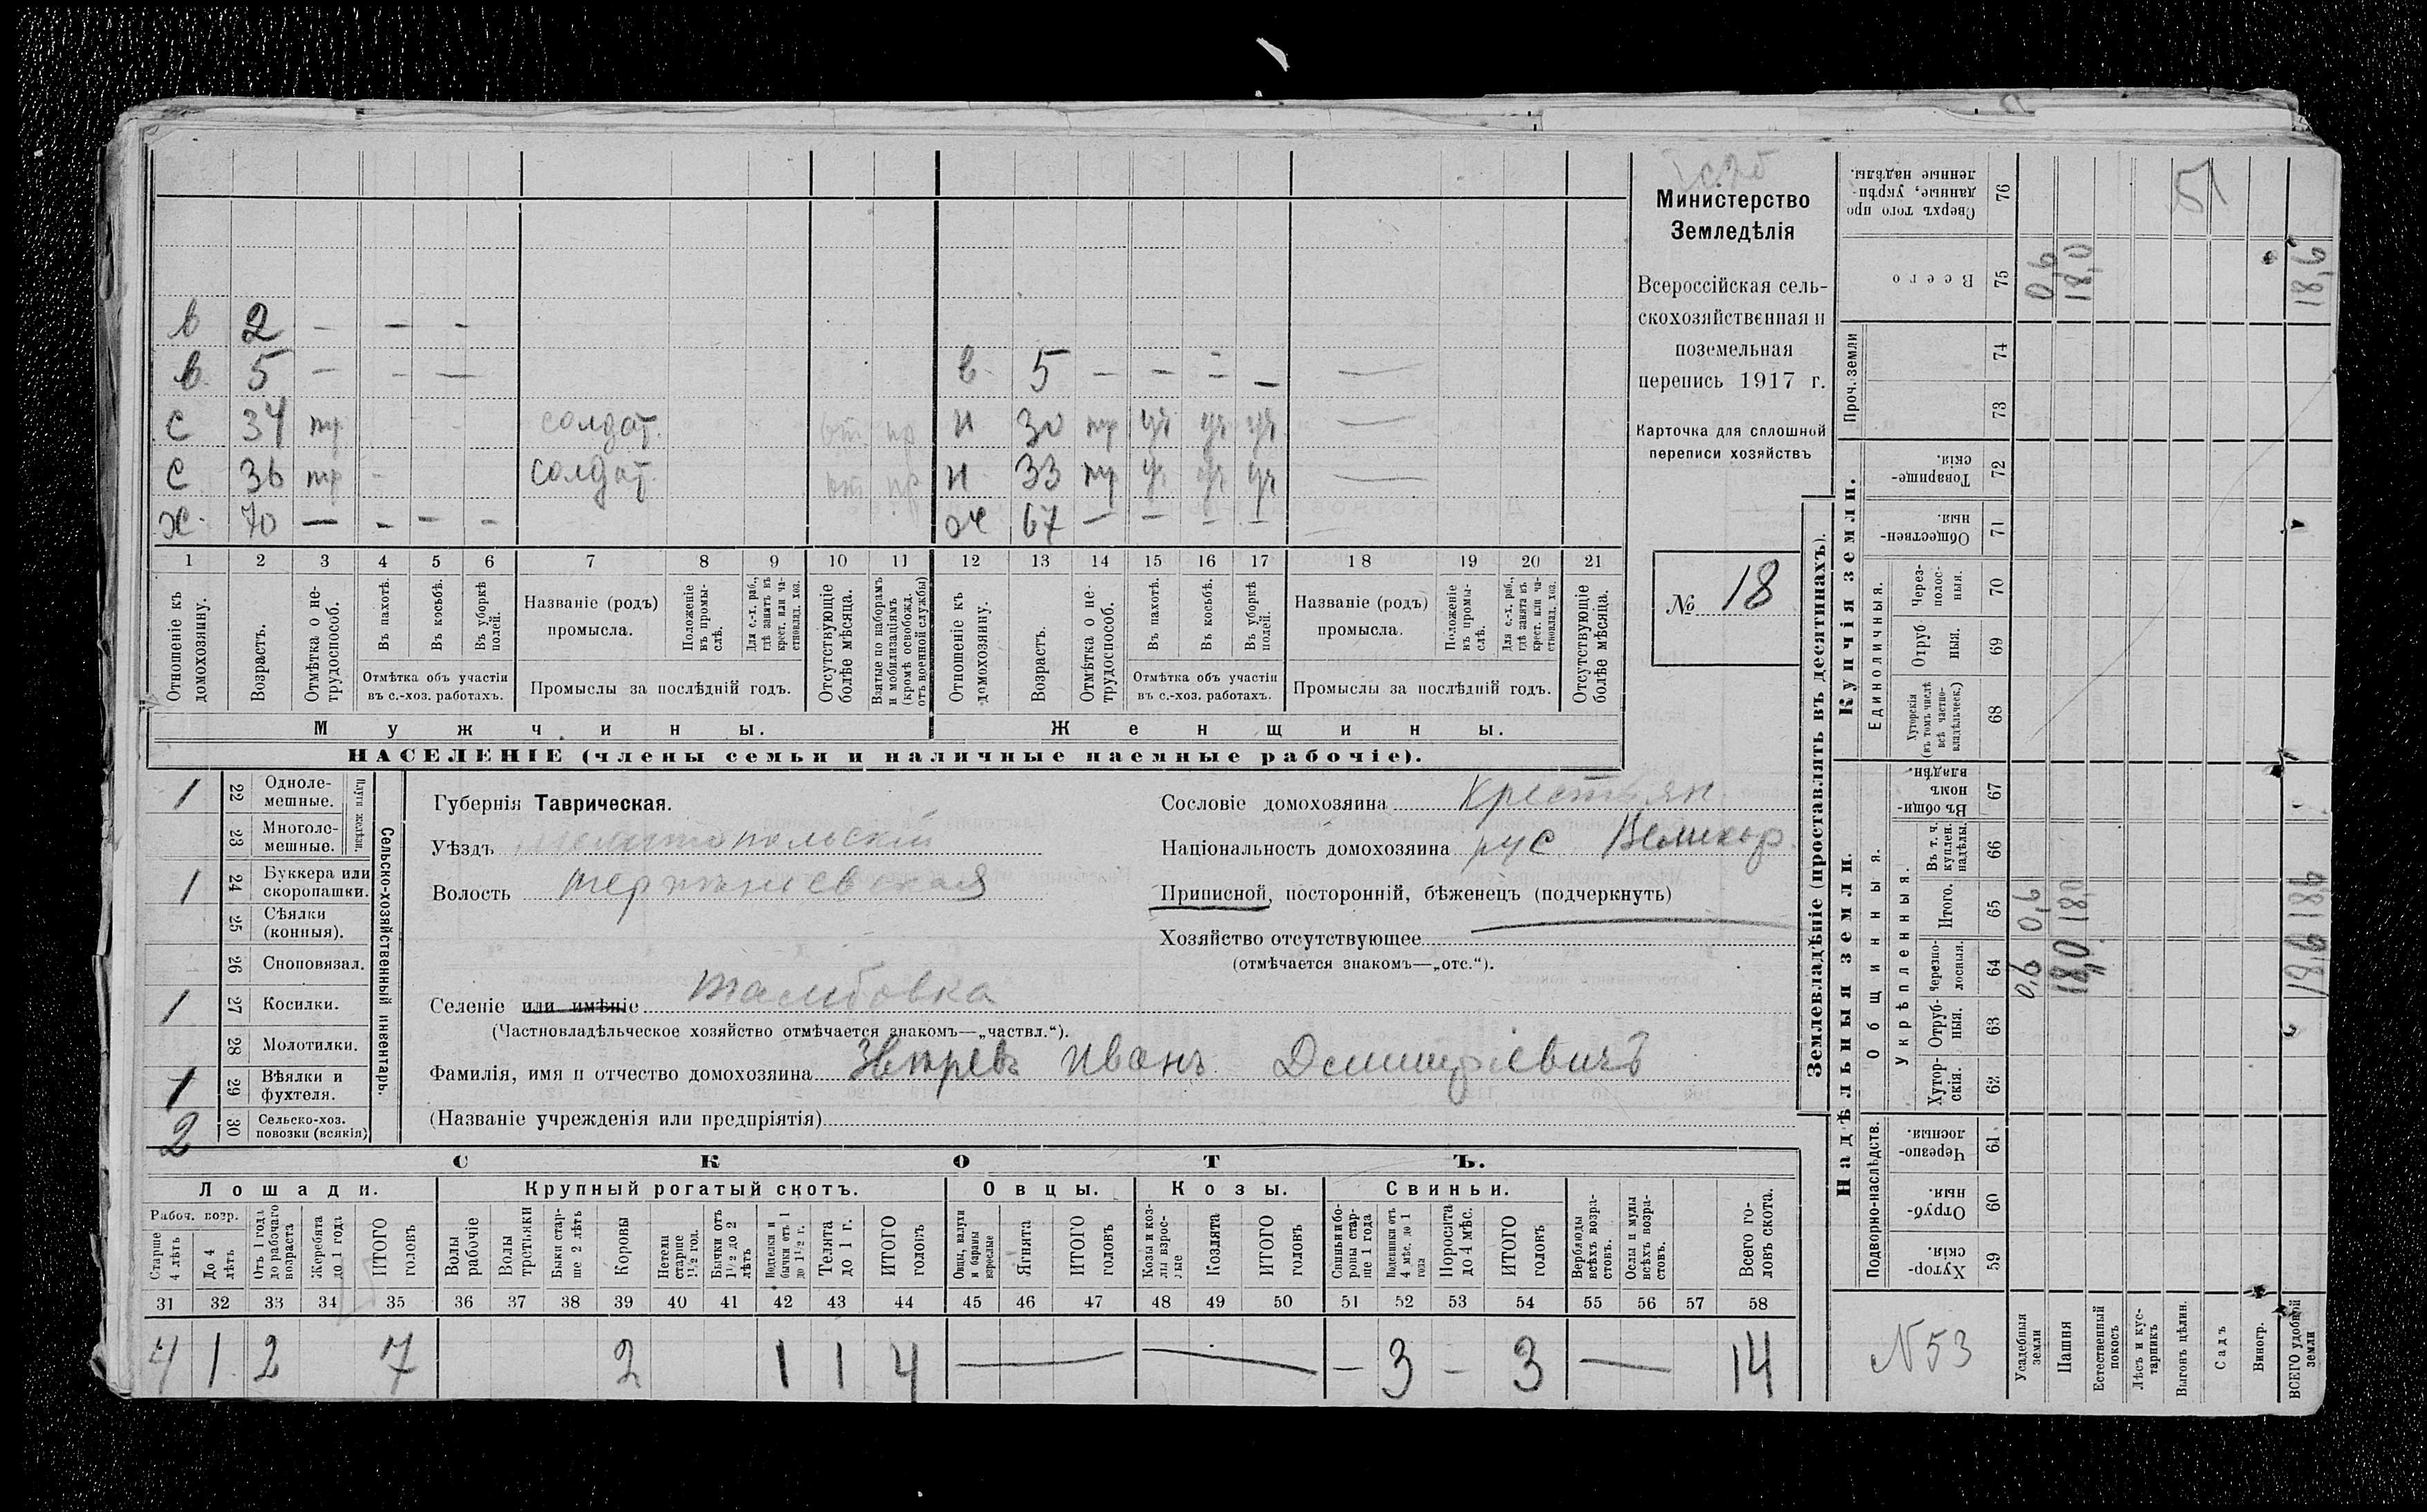 в 2 – – –
в 5 – – – в 5 – – – – —
с 34 тр солдат. от. пр н 30 тр уч уч уч —
с 36 тр - солдат. от. пр н 33 тр уч уч уч —
х. 70 – – – – ж 67 – – – –
1 2 3 4 5 6 7 8 9 10 11 12 13 14 15 16 17 18 19 20 21
Отношеніе къ домохозяину.
Возрастъ.
Отмѣтка о не-трудоспособ.
Въ пахотѣ.
Въ косьбѣ.
Въ уборкѣ полей.
Отмѣтка объ участіи въ с.-хоз. работахъ.
Названіе (родъ) промысла.
Положеніе въ промы-слѣ.
Для с.-х. раб., гдѣ занятъ въ крест. или ча-стновлад. хоз.
Промыслы за послѣдній годъ.
Отсутствующіе болѣе мѣсяца.
Взятые по наборамъ и мобилизаціямъ (кромѣ освобожд. отъ военной службы)
Отношеніе къ домохозяину.
Возрастъ.
Отмѣтка о не-трудоспособ.
Въ пахотѣ.
Въ косьбѣ.
Въ уборкѣ полей.
Отмѣтка объ участіи въ с.-хоз. работахъ.
Названіе (родъ) промысла.
Положеніе въ промы-слѣ.
Для с.-х. раб., гдѣ занята въ крест. или ча-стновлад. хоз.
Промыслы за послѣдній годъ.
Отсутствующіе болѣе мѣсяца.
Мужчины. Женщины.
НАСЕЛЕНІЕ (члены семьи и наличные наемные рабочіе).
Министерство
Земледѣлія
Всероссійская сель-
скохозяйственная и
поземельная
перепись 1917 г.
Карточка для сплошной
переписи хозяйствъ
№ 18
Сельско-хозяйственный инвентарь.
Плуги желѣзн.
1 22 Одноле-мешные.
23 Многоле-мешные.
1 24 Буккера или скоропашки.
25 Сѣялки (конныя).
26 Сноповязал.
1 27 Косилки.
28 Молотилки.
1 29 Вѣялки и фухтеля.
2 30 Сельско-хоз. повозки (всякія)
Губернія Таврическая.
Уѣздъ Мелитопольскій
Волость Терпениевская
Сословіе домохозяина Крестьян
Національность домохозяина рус Великор.
Приписной, посторонній, бѣженецъ (подчеркнуть)
Хозяйство отсутствующее
(отмѣчается знакомъ—„отс.“).
Селеніе или имѣніе Тамбовка
(Частновладѣльческое хозяйство отмѣчается знакомъ—„частвл.“).
Фамилія, имя и отчество домохозяина Звѣревъ Иванъ Дмитріевичъ
(Названіе учрежденія или предпріятія)
СКОТЪ.
Лошади. Крупный рогатый скотъ. Овцы. Козы. Свиньи.
Рабоч. возр.
Старше 4 лѣтъ
До 4 лѣтъ
Отъ 1 года до рабочаго возраста
Жеребята до 1 года
ИТОГО головъ
Волы рабочіе
Волы третьяки
Быки стар-ше 2 лѣтъ
Коровы
Нетели старше 1½ год.
Бычки отъ 1½ до 2 лѣтъ
Подтелки и бычки отъ 1 до 1½ г.
Телята до 1 г.
ИТОГО головъ
Овцы, валухи и бараны взрослые
Ягнята
ИТОГО головъ
Козы и коз-лы взрос-лые
Козлята
ИТОГО головъ
Свиньи и бо-ровы стар-ше 1 года
Подсвинки отъ 4 мѣс. до 1 года
Поросята до 4 мѣс.
ИТОГО головъ
Верблюды всѣхъ возра-стовъ.
Ослы и мулы всѣхъ возра-стовъ.
Всего го-ловъ скота.
31 32 33 34 35 36 37 38 39 40 41 42 43 44 45 46 47 48 49 50 51 52 53 54 55 56 57 58
4 1 2 7 2 1 1 4 — — – 3 – 3 — 14
Землевладѣніе (проставлять въ десятинахъ).
Надѣльныя земли. Купчія земли. Проч. земли
Подворно-наслѣдств.
Общинныя.
Укрѣпленныя.
Единоличныя.
Хутор-скія. 59
Отруб-ныя. 60
Черезпо-лосныя. 61
Хутор-скія. 62
Отруб-ныя. 63
Черезпо-лосныя. 64
Итого. 65
Въ т. ч. куплен. надѣлы. 66
Въ общин-номъ владѣн. 67
Хуторскія (въ томъ числѣ всѣ частно-владѣльческ.) 68
Отруб ныя. 69
Через-полос-ныя. 70
Обществен-ныя. 71
Товарище-скія. 72
73
74
Всего 75
Сверхъ того про данные, укрѣп-ленные надѣлы. 76
N 53
Усадебныя земли 0,6 0,6 0,6
Пашня 18,0 18,0 18,0
Естественный покосъ
Лѣсъ и кус-тарникъ
Выгонъ цѣлин.
Садъ
Виногр.
ВСЕГО удобной земли 18,6 18,6 18,6
51